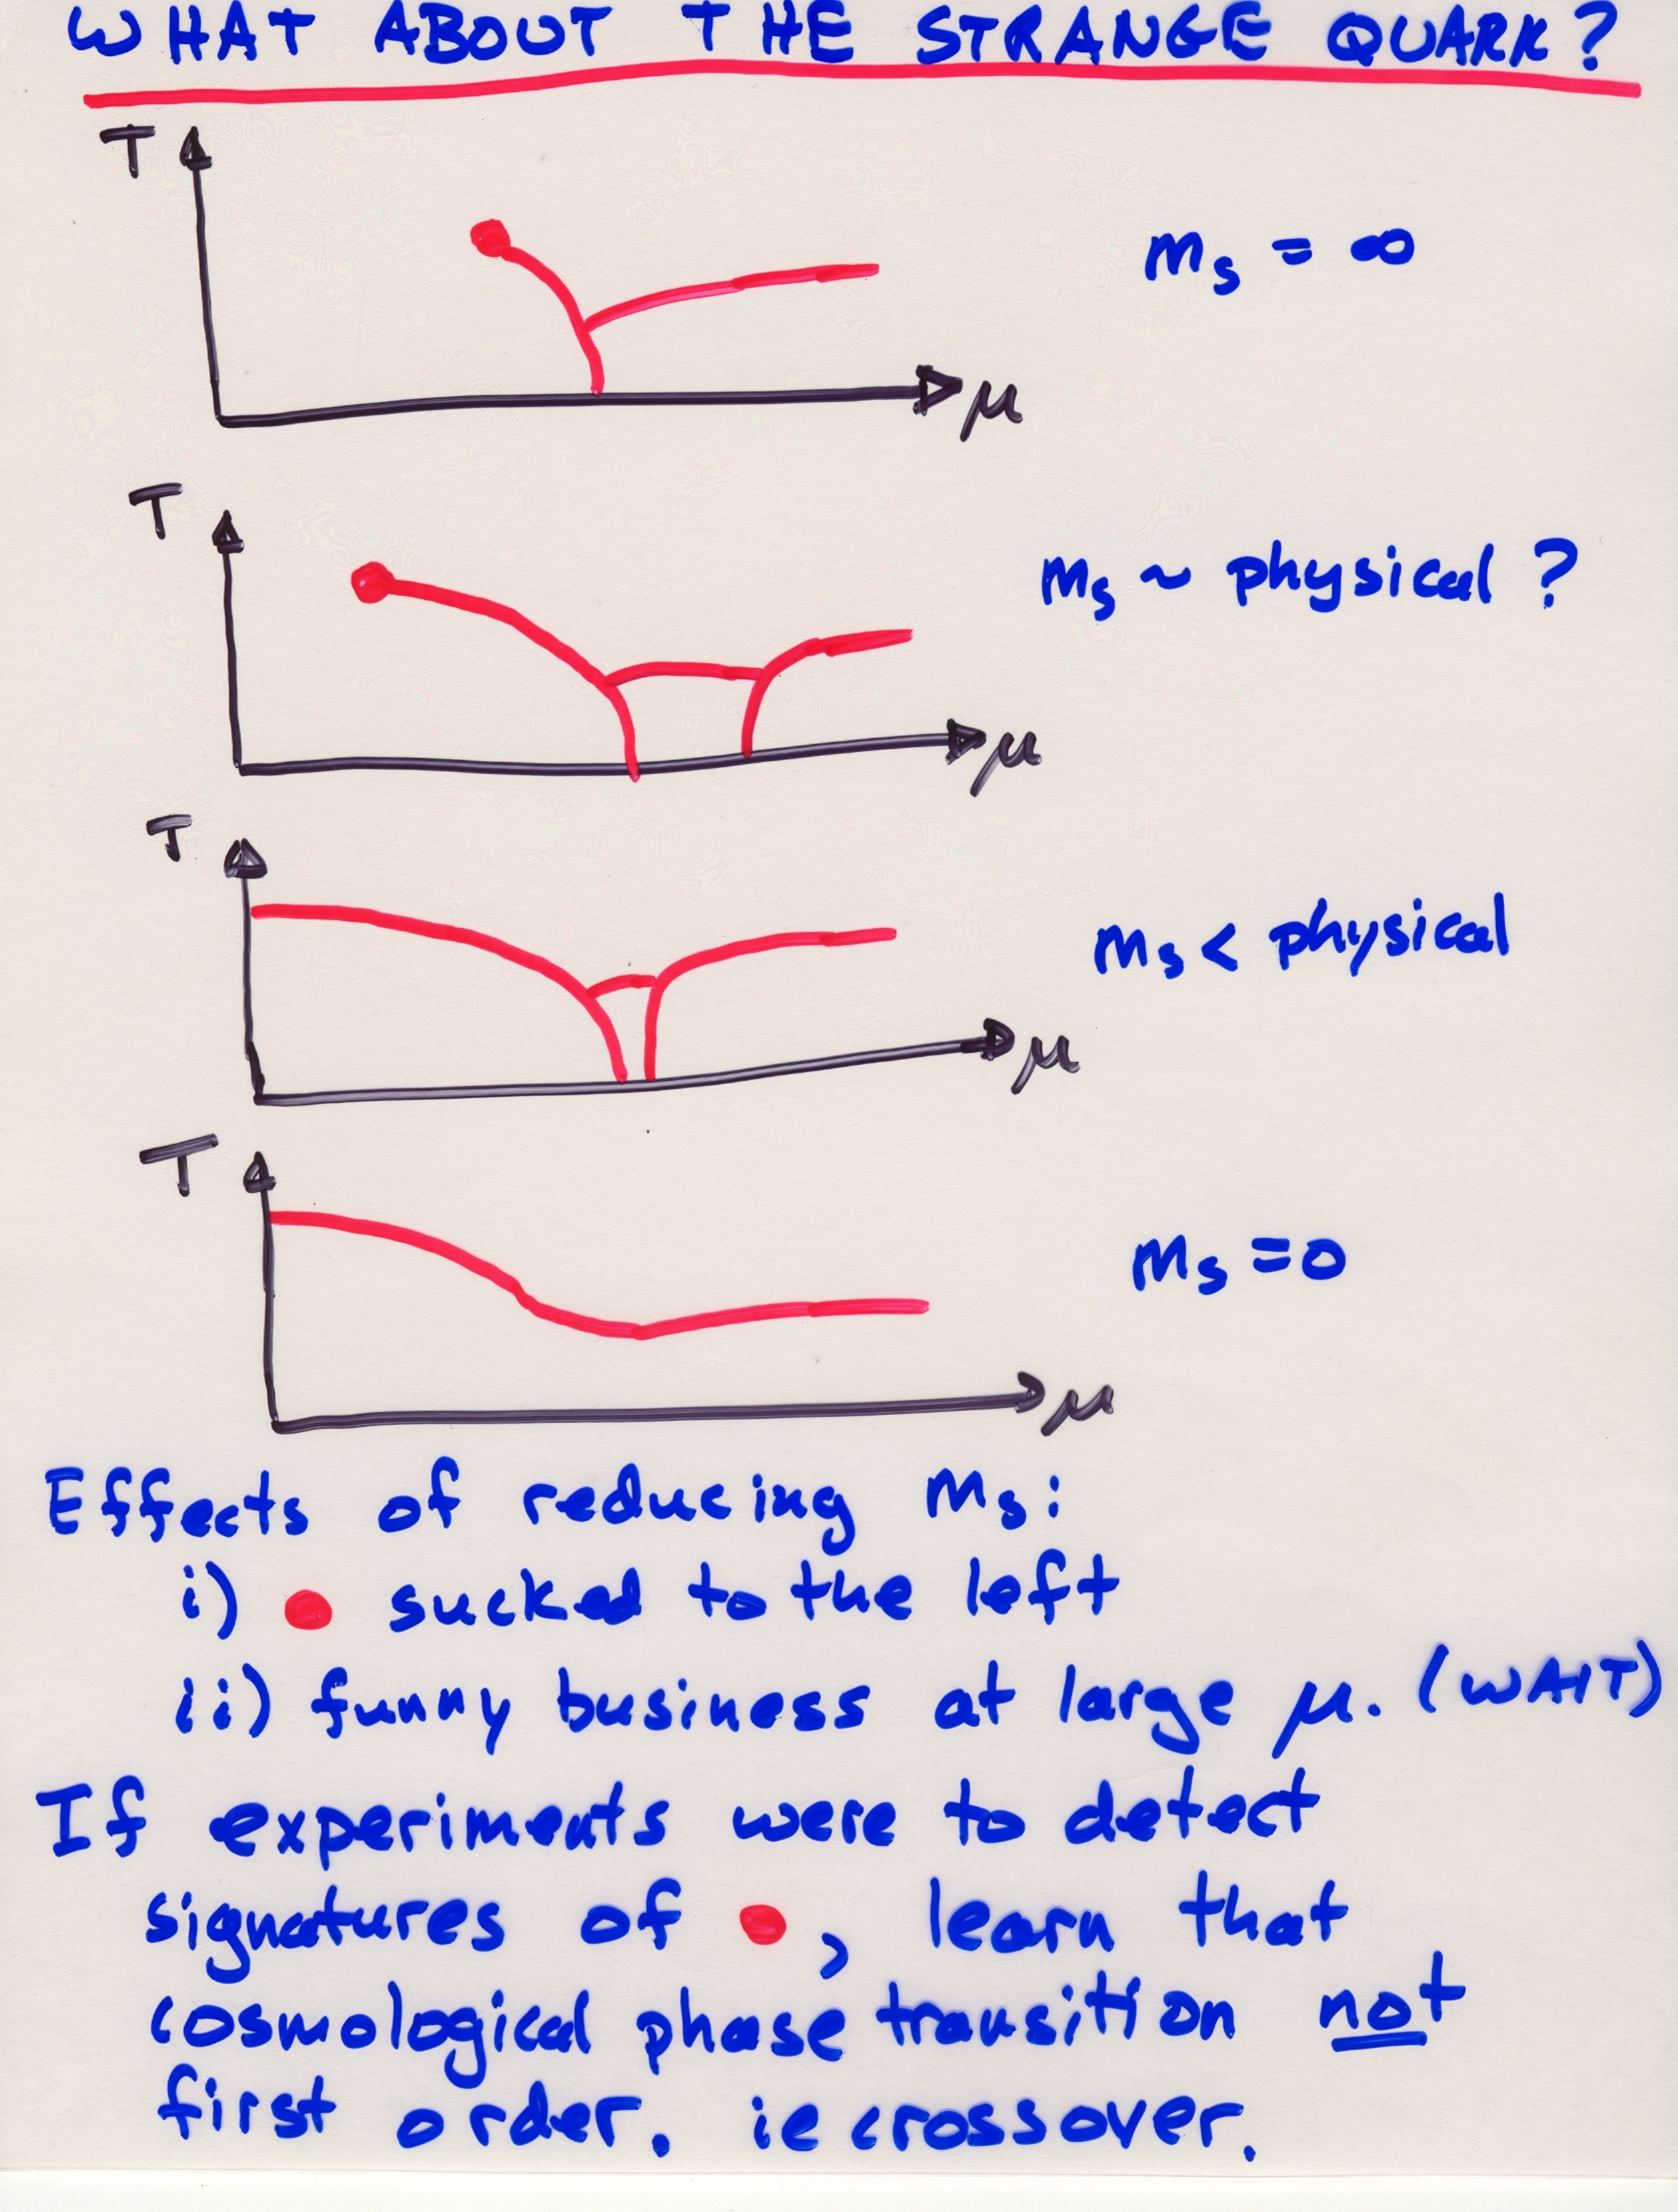 WHAT ABOUT THE STRANGE QUARK?
T
mₛ = ∞
μ
T
mₛ ~ physical ?
μ
T
mₛ < physical
μ
T
mₛ = 0
μ
Effects of reducing mₛ:
i) ● sucked to the left
ii) funny business at large μ. (WAIT)
If experiments were to detect
signatures of ●, learn that
cosmological phase transition not
first order. ie crossover.